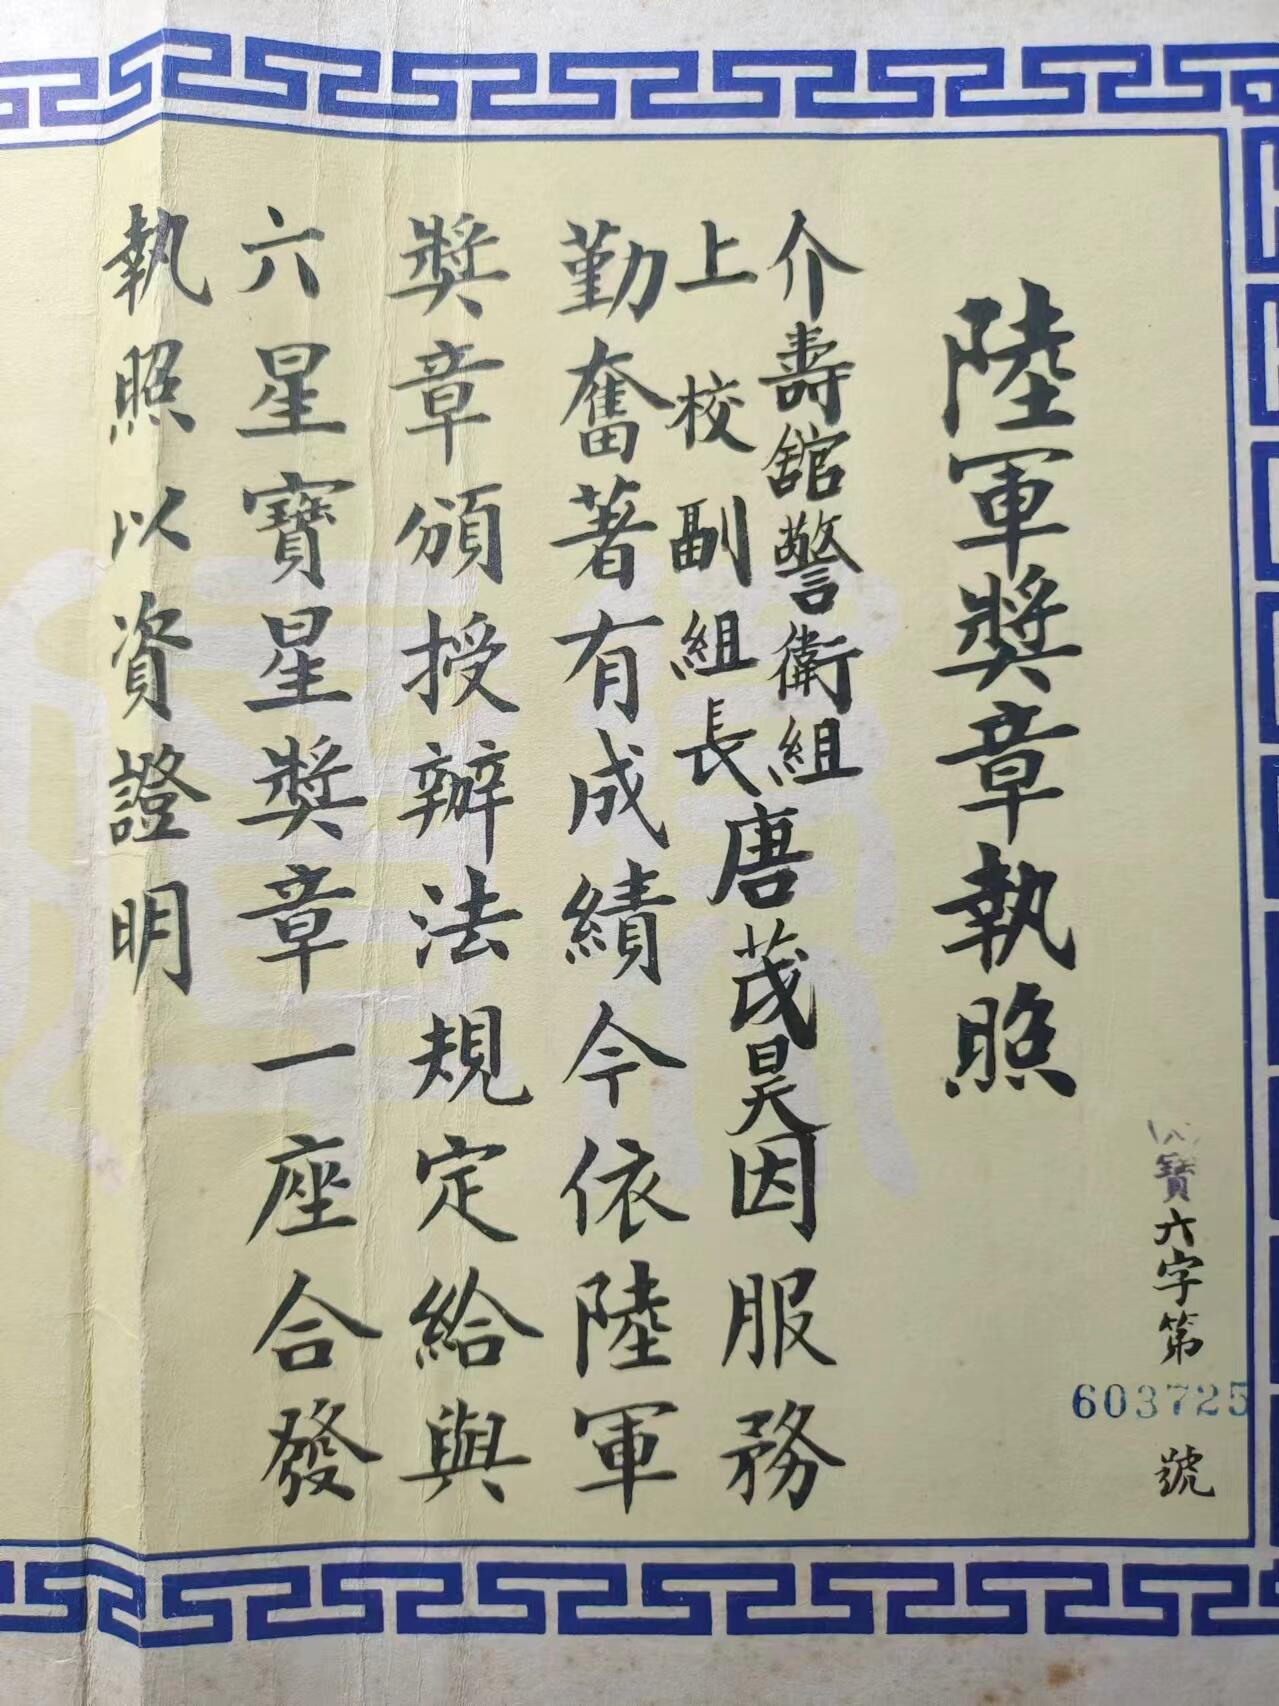 陸軍獎章執照
寶六字第
603725
號
介壽館警衛組
上校副組長唐茂昊因服務
勤奮著有成績今依陸軍
獎章頒授辦法規定給與
六星寶星獎章一座合發
執照以資證明